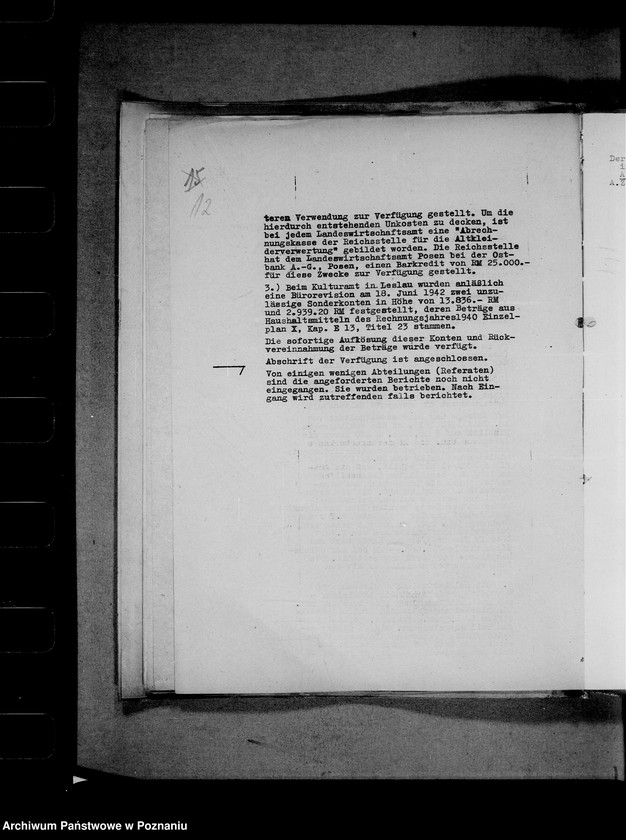 15
12
teren Verwendung zur Verfügung gestellt. Um die
hierdurch entstehenden Unkosten zu decken, ist
bei jedem Landeswirtschaftsamt eine "Abrech-
nungskasse der Reichsstelle für die Altklei-
derverwertung" gebildet worden. Die Reichsstelle
hat dem Landeswirtschaftsamt Posen bei der Ost-
bank A.-G., Posen, einen Barkredit von RM 25.000.-
für diese Zwecke zur Verfügung gestellt.
3.) Beim Kulturamt in Leslau wurden anläßlich
eine Bürorevision am 18. Juni 1942 zwei unzu-
lässige Sonderkonten in Höhe von 13.836.- RM
und 2.939.20 RM festgestellt, deren Beträge aus
Haushaltsmitteln des Rechnungsjahres1940 Einzel-
plan X, Kap. E 13, Titel 23 stammen.
Die sofortige Aufkösung dieser Konten und Rück-
vereinnahmung der Beträge wurde verfügt.
Abschrift der Verfügung ist angeschlossen.
Von einigen wenigen Abteilungen (Referaten)
sind die angeforderten Berichte noch nicht
eingegangen. Sie wurden betrieben. Nach Ein-
gang wird zutreffenden falls berichtet.
Der
A.Z
Archiwum Państwowe w Poznaniu